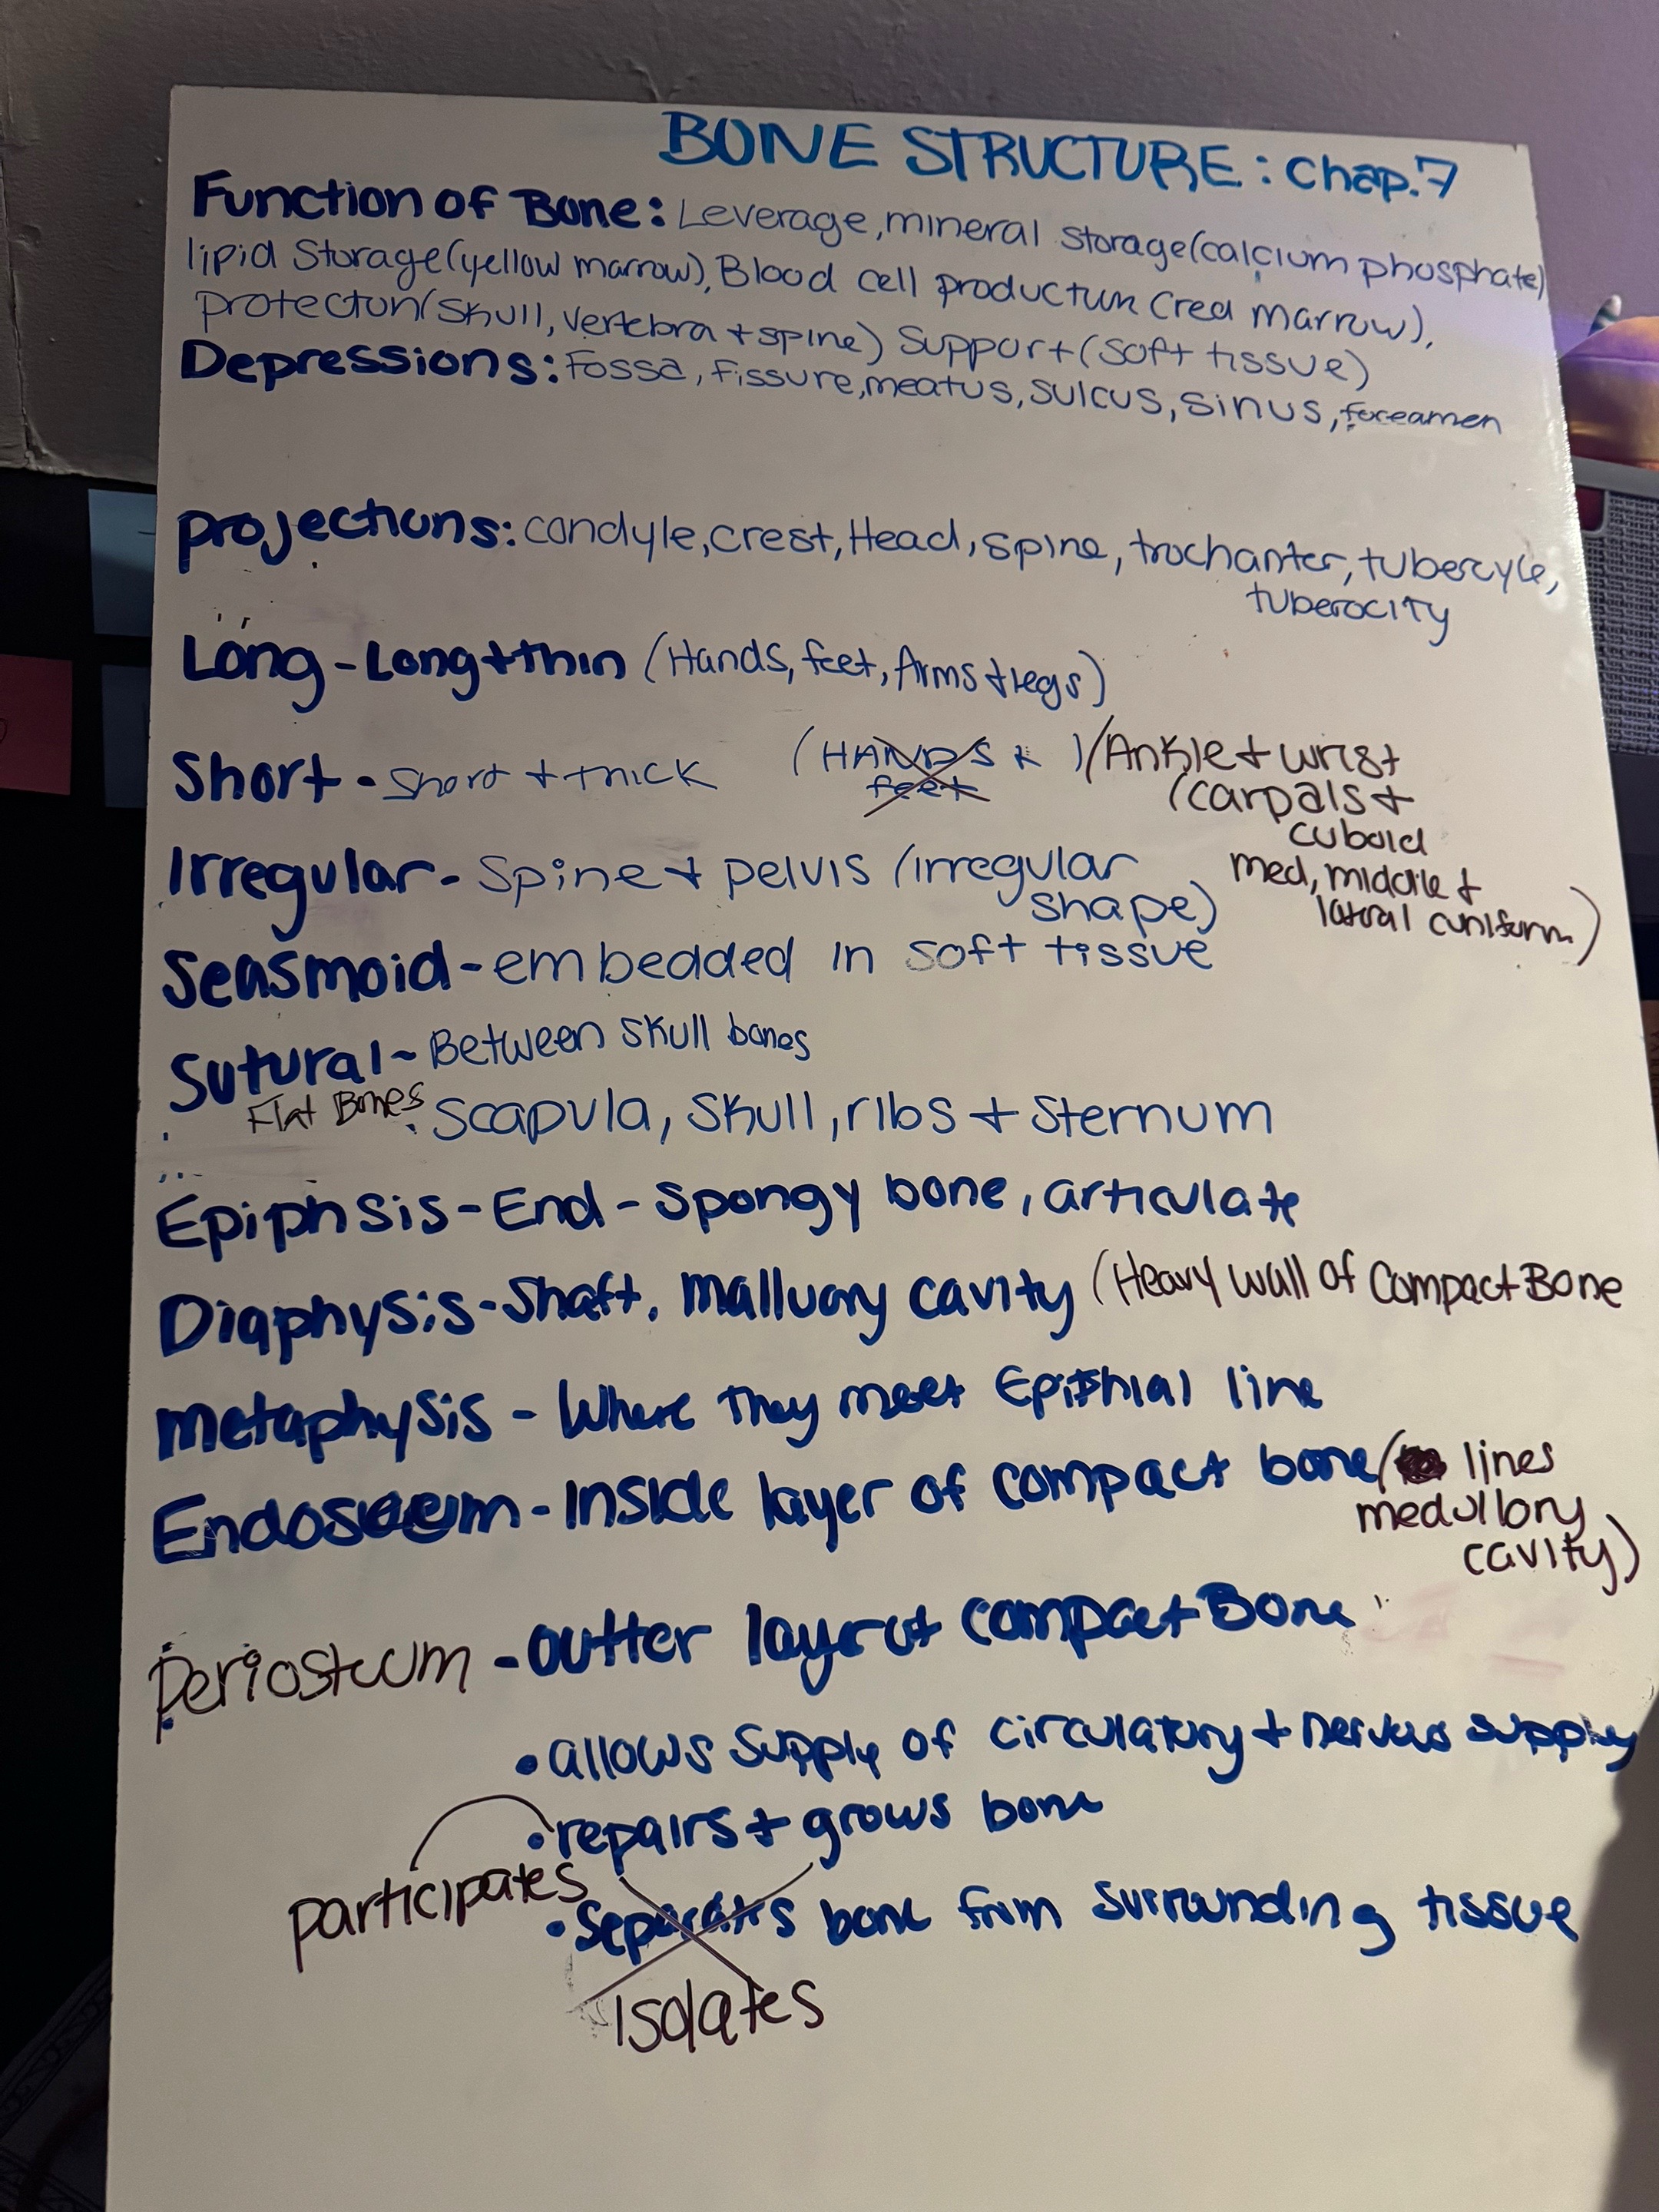 BONE STRUCTURE: Chap.7
Function of Bone: Leverage, mineral storage(calcium phosphate)
lipid Storage(yellow marrow), Blood cell production (red marrow),
Protection(skull, vertebra + spine) Support (soft tissue)
Depressions: Fossa, fissure, meatus, sulcus, sinus, foreamen
Projections: condyle, crest, Head, spine, trochanter, tubercyle,
tuberocity
Long - Long + thin (Hands, feet, Arms + legs)
Short - Short + thick (HANDS + ) (Ankle + wrist
feet
(carpals +
cuboid
Irregular - Spine + pelvis (irregular
med, middle +
shape)
latral cuniform)
Seasmoid - embedded in soft tissue
Sutural - Between skull bones
Flat Bones. Scapula, skull, ribs + sternum
Epiphsis - End - spongy bone, articulate
Diaphysis - Shaft, malluary cavity (Heavy wall of Compact Bone
metaphysis - Where they meet line
- Inside layer of compact bone ( lines
medullory
cavity)
Periosteum - outter layer of compact Bone
• allows supply of circulatory + nervus supply
• repairs + grows bone
participates
• Separates bone from surrounding tissue
Isolates